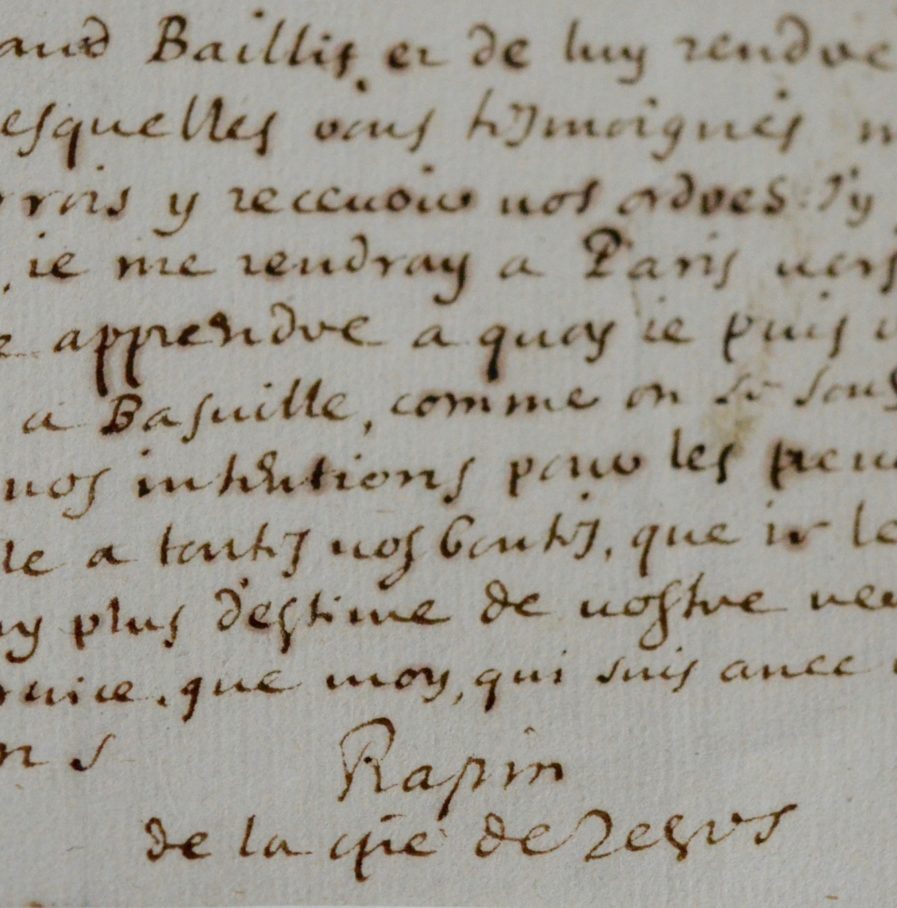 and Baillif et de luy rendre
esquelles vous tesmoignés
rrois y receuoir uos ordres. J'y
, ie me rendray a Paris uers
apprendre a quoy ie puis
a Basuille, comme on
uos intentions pour les
le a toutes uos bontés, que ie le
uy plus d'estime de uostre
ruice. que moy, qui suis auec
n s
Rapin
de la cñie de Jesus